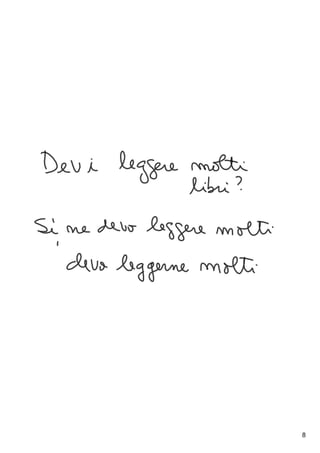 Devi leggere molti
libri?
Si, ne devo leggere molti
devo leggerne molti
8